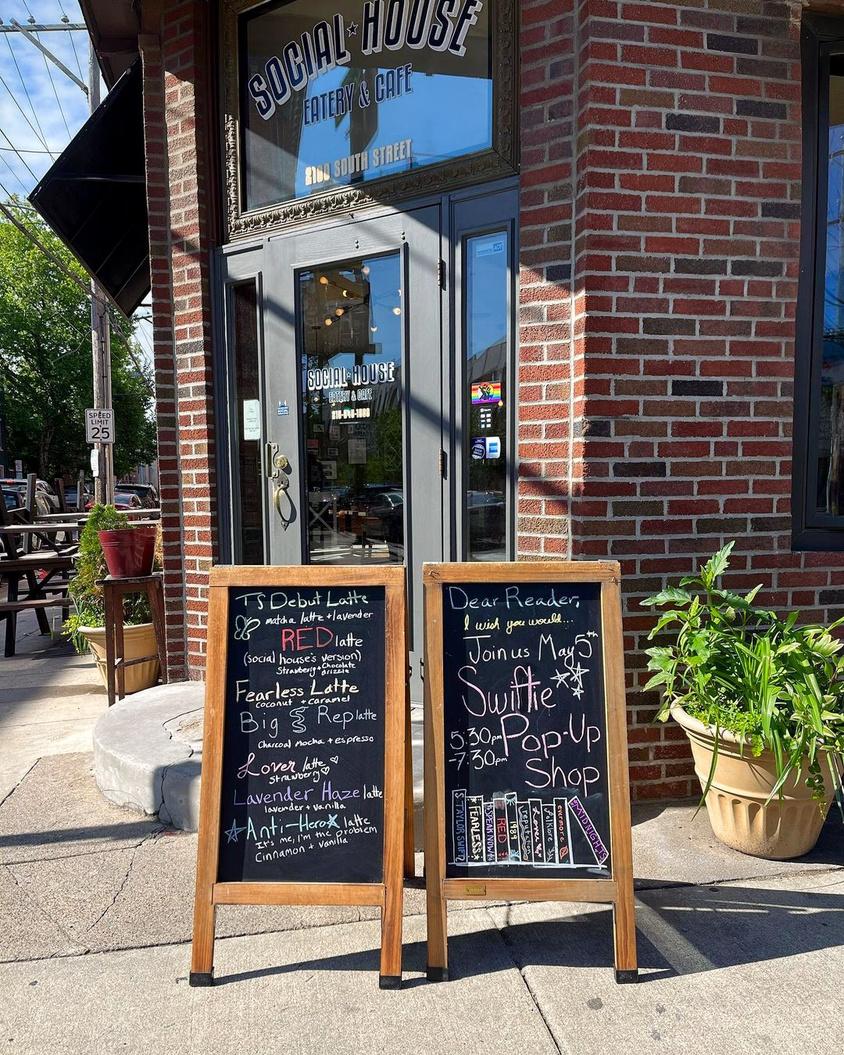 SOCIAL★HOUSE
EATERY & CAFE
2100 SOUTH STREET
SOCIAL★HOUSE
EATERY & CAFE
SPEED
LIMIT
25
TS Debut Latte
matcha latte + lavender
RED latte
(social house's version)
Strawberry + Chocolate
drizzle
Fearless Latte
coconut + caramel
Big Rep latte
Charcoal mocha + espresso
Lover latte
strawberry
Lavender Haze latte
lavender + vanilla
Anti-Hero latte
It's me, I'm the problem
Cinnamon + vanilla
Dear Reader,
I wish you would...
Join us May 5th
Swiftie
5:30pm Pop-Up
-7:30pm Shop
TAYLOR SWIFT
FEARLESS
SPEAK NOW
RED
1989
reputation
Lover
folklore
evermore
MIDNIGHTS